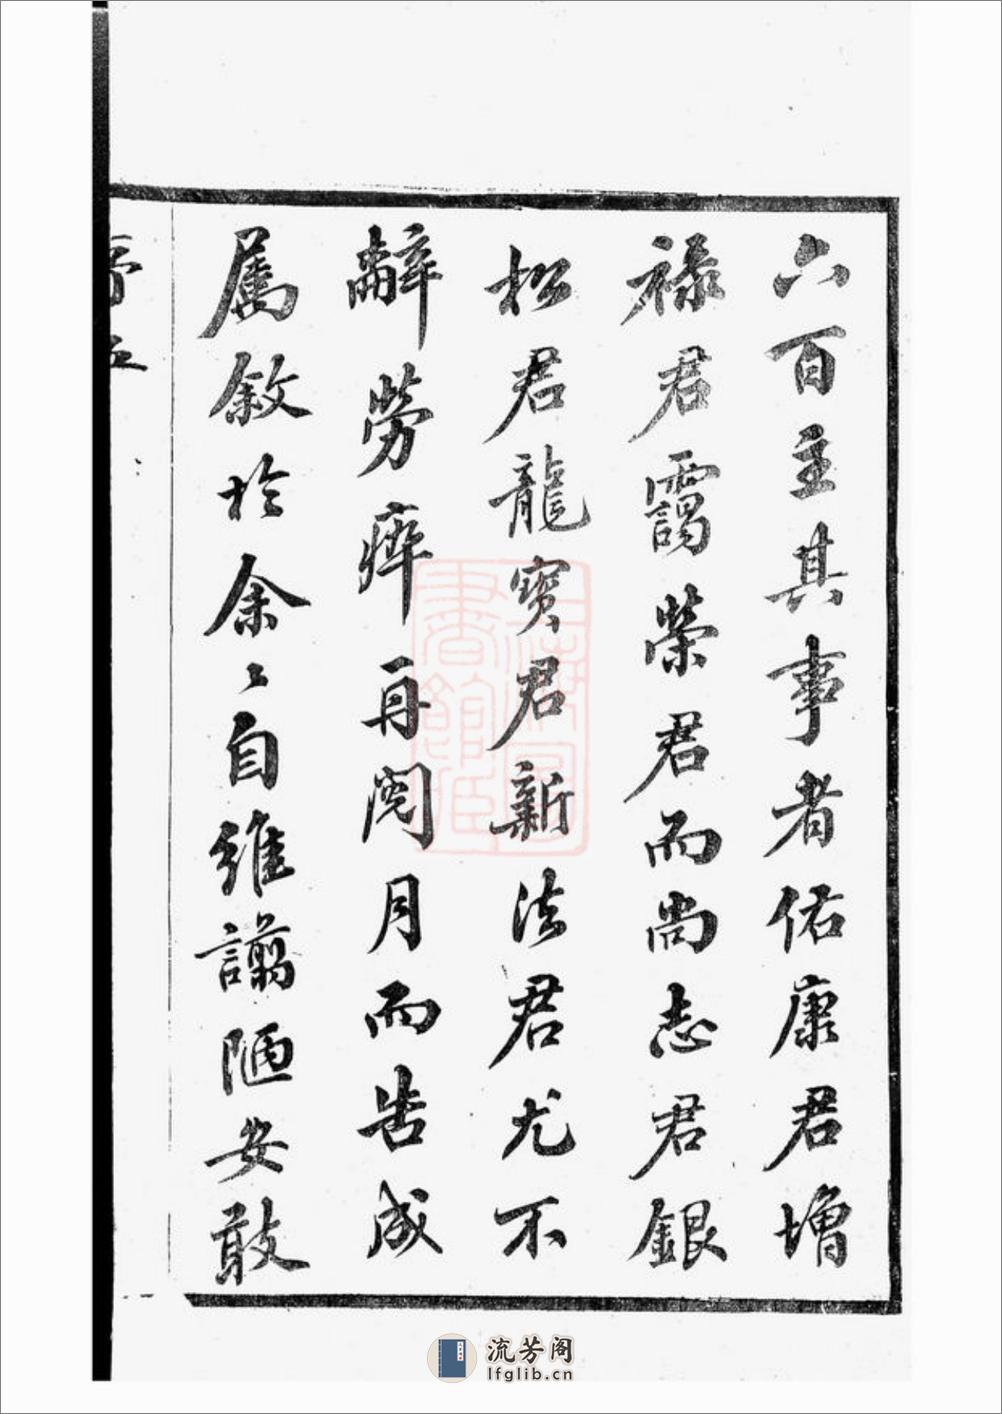 六百主其事者佑康君增
祿君靄榮君而尚志君銀
松君龍寶君新法君尤不
辭勞瘁再閱月而告成
屬敘於余〻自維譾陋安敢
序五
上海圖書館藏
流芳阁
lfglib.cn